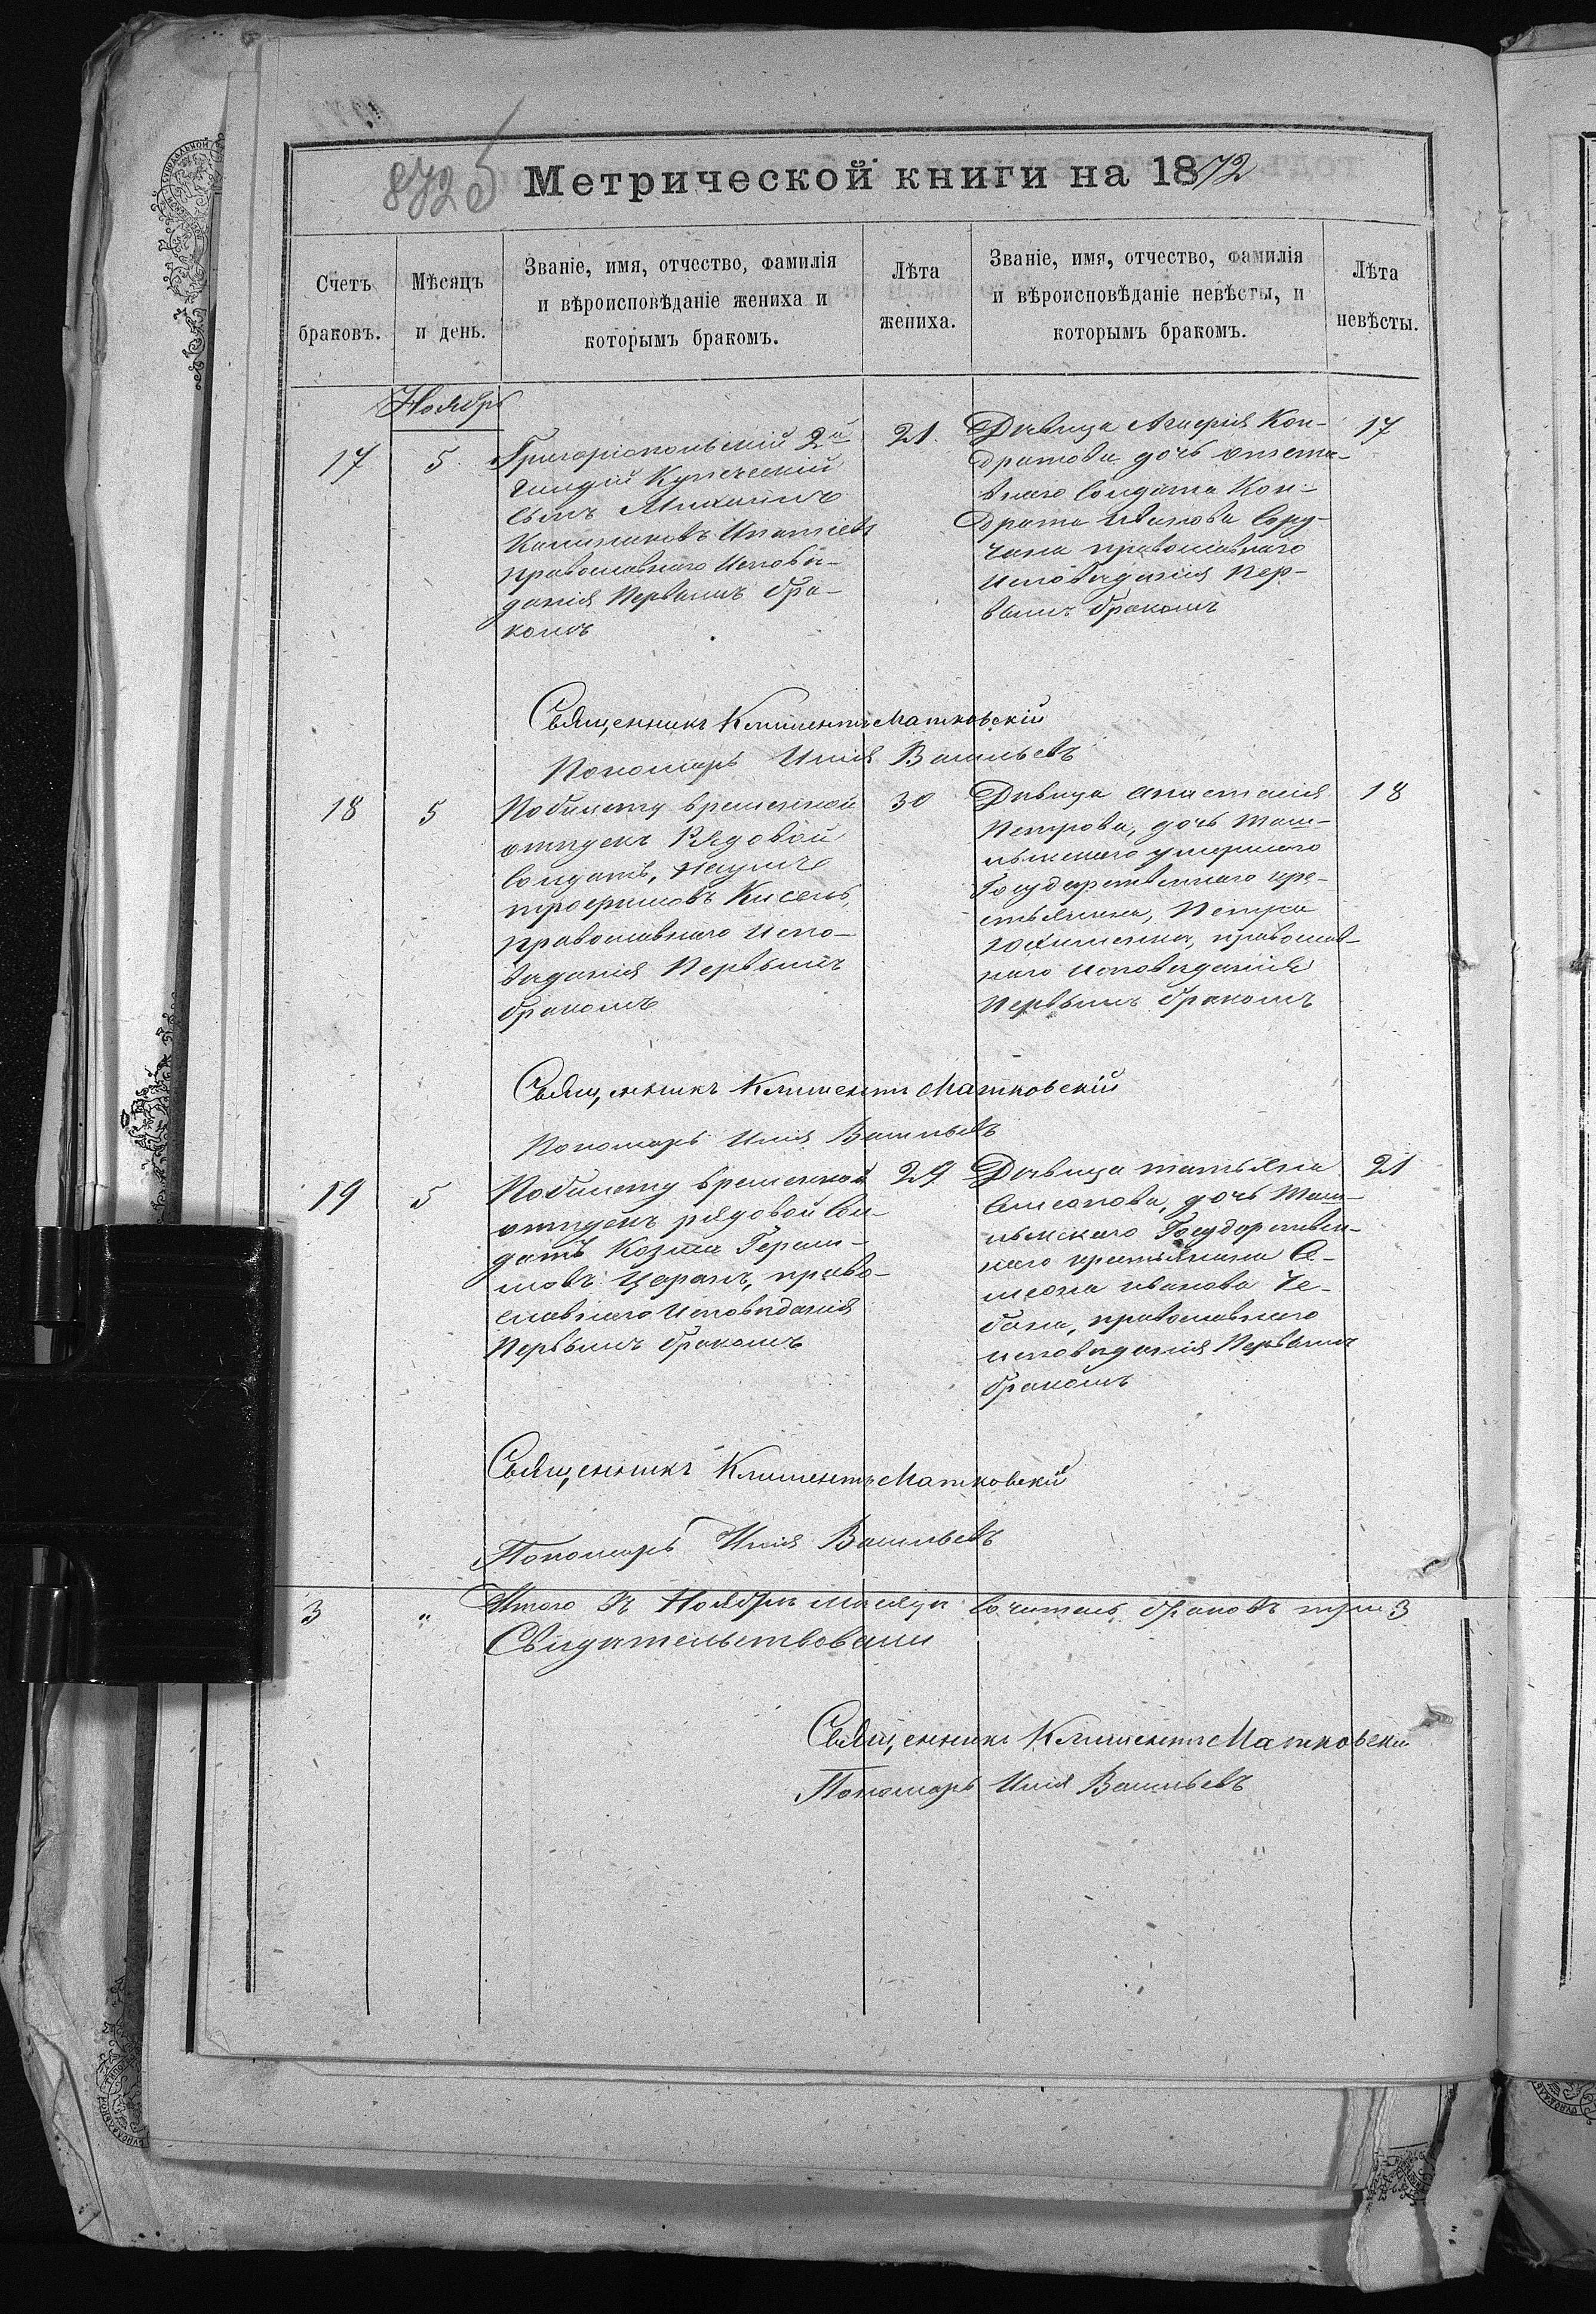 8725 Метрической книги на 1872
Счетъ браковъ.
Мѣсяцъ и день.
Званіе, имя, отчество, фамилія и вѣроисповѣданіе жениха и которымъ бракомъ.
Лѣта жениха.
Званіе, имя, отчество, фамилія и вѣроисповѣданіе невѣсты, и которымъ бракомъ.
Лѣта невѣсты.
Ноябрь
17
5
Григоріопольскій 2й
гилдіи Купеческій
сынъ Михаилъ
Калиниковъ Игнатіевъ
православнаго Исповѣ-
данія Первымъ бра-
комъ
21.
Дѣвица Кон-
дратова дочь отста-
внаго Солдата Кон-
драта Иванова
православнаго
исповѣданія Пер-
вымъ бракомъ
17
Священникъ Климентъ Матковскій
Пономарь Илія Васильевъ
18
5
По билету временной
отпускъ Рядовой
Солдатъ, Наумъ
трофимовъ Кисель,
православнаго Испо-
вѣданія Первымъ
бракомъ
30
Дѣвица Анастасія
Петрова, дочь Таш-
лыкскаго умершаго
Государственнаго кре-
стьянина, Петра
православ-
наго исповѣданія
Первымъ бракомъ
18
Священникъ Климентъ Матковскій
Пономарь Илія Васильевъ
19
5
По билету временной
отпускъ рядовой Сол-
датъ Козма Гераси-
мовъ Царанъ, право-
славнаго Исповѣданія
Первымъ бракомъ
29
Дѣвица татьяна
Симеонова, дочь Таш-
лыкскаго Государствен-
наго крестьянина Си-
меона иванова Че-
бана, православнаго
исповѣданія Первымъ
бракомъ
21
Священникъ Климентъ Матковскій
Пономарь Илія Васильевъ
3
"
Итого въ Ноябрѣ мѣсяцѣ бракосъ три 3
Свидѣтельствовали
Священникъ Климентъ Матковскій
Пономарь Илія Васильевъ